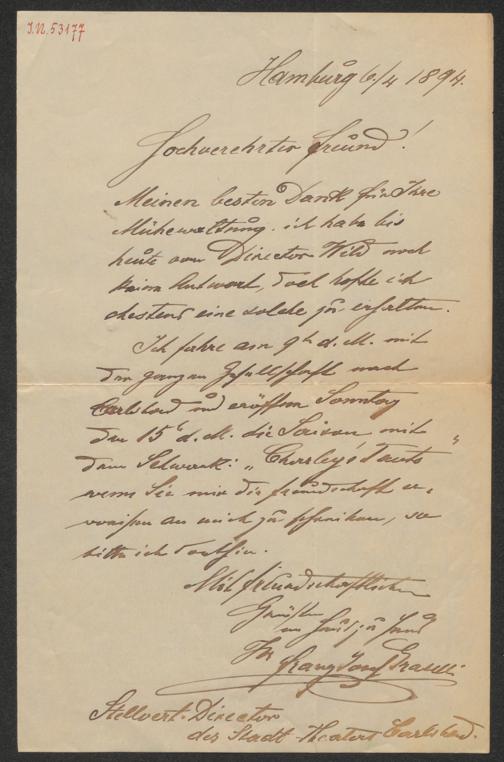 I.N. 53177
Hamburg 6/4 1894.
Hochverehrter Freund!
Meinen besten Dank für Ihre
Mühewaltung. ich habe bis
heute von Director Wild noch
keine Antwort, doch hoffe ich
ehestens eine solche zu erhalten.
Ich fahre am 9t d. M. mit
der ganzen Gesellschaft nach
Carlsbad und eröffne Sonntag
den 15t d. M. die Saison mit
dem Schwank: „Charley's Tante"
wenn Sie mir die Freundschaft er-
weisen an mich zu schreiben, so
bitte ich dorthin.
Mit freundschaftlichen
Grüßen
von Haus zu Haus
Ihr Franz Josef Graselli
Stellvert. Director
des Stadt-Theaters Carlsbad.